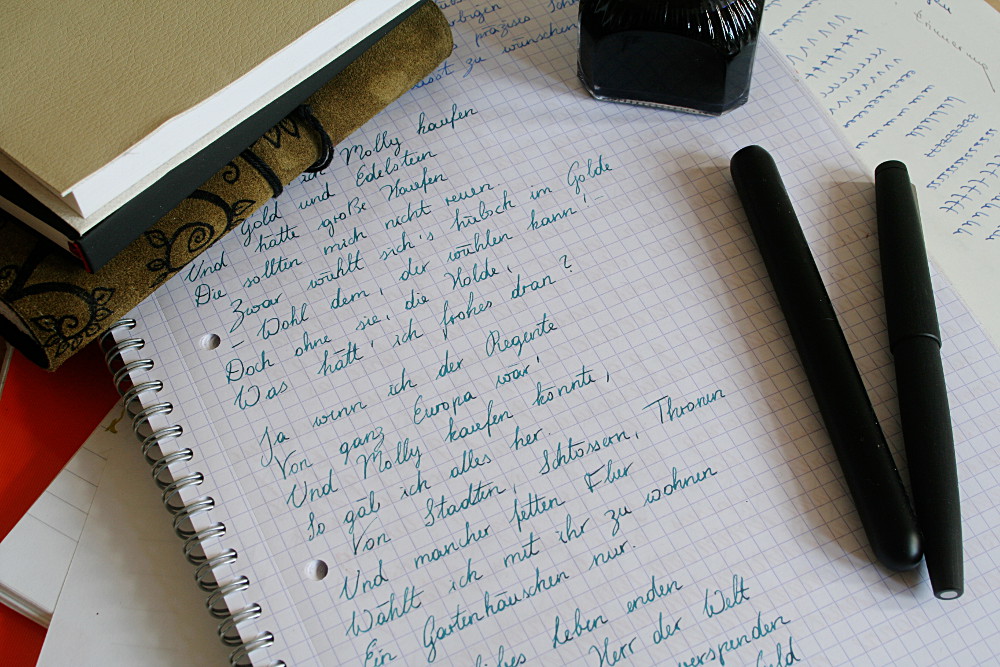 farbigen
präzises Schr
zu wünschen
Molly kaufen
Gold und Edelstein
Und hätte große Haufen
Die sollten mich nicht reuen.
Zwar wühlt sich's hübsch im Golde
– Wohl dem, der wühlen kann! –
Doch ohne sie, die Holde,
Was hätt' ich frohes dran?
Ja wenn ich der Regente
Von ganz Europa wär'
Und Molly kaufen könnte,
So gäb ich alles her.
Von Städten, Schlössern, Thronen
Und mancher fetten Flur
Wählt ich mit ihr zu wohnen
Ein Gartenhäuschen nur.
Leben enden
Herr der Welt
verspenden